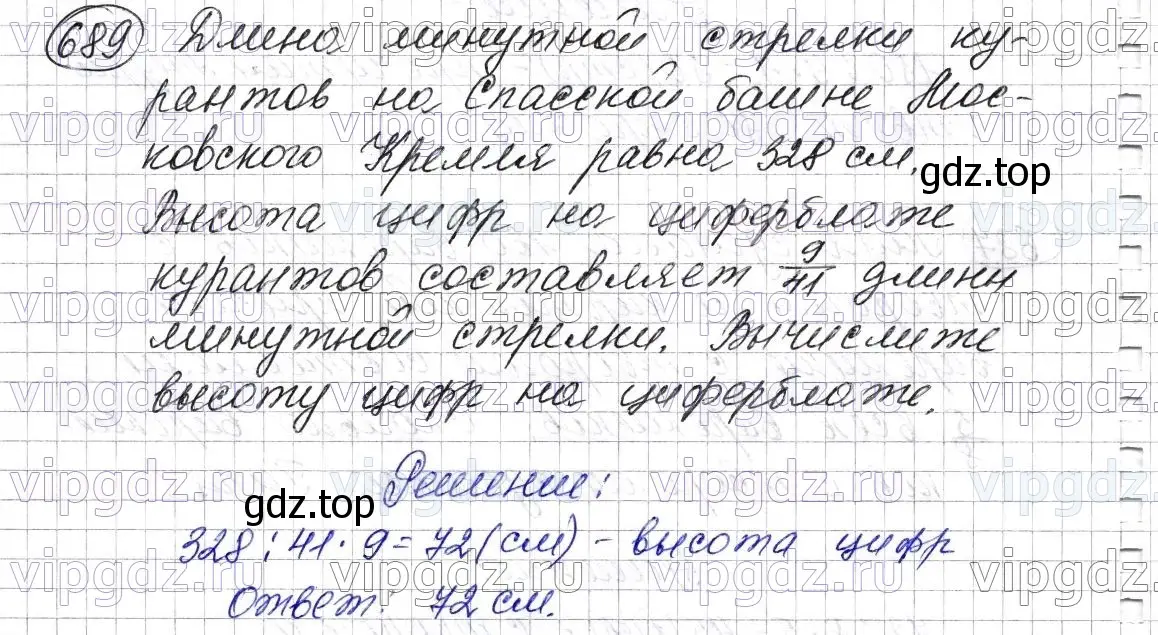 689 Длина минутной стрелки ку-
рантов на Спасской башне Мос-
ковского Кремля равна 328 см.
Высота цифр на циферблате
курантов составляет 9/41 длины
минутной стрелки. Вычислите
высоту цифр на циферблате.
Решение:
328 : 41 · 9 = 72 (см) - высота цифр
Ответ: 72 см.
gdz.top
gdz.top
vipgdz.ru